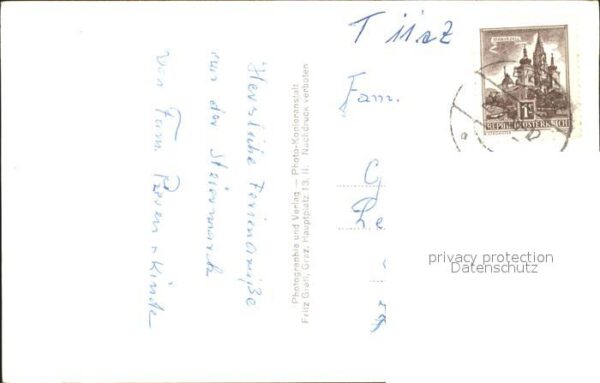 Herzliche Feriengrüße
aus der Steiermark
von Fam. + Kinder
Photographie und Verlag — Photo-Kopieranstalt
Fritz Gratl, Graz, Hauptplatz 13, II. Nachdruck verboten
Fam.
G
Le
MARIAZELL
1S
REPUBLIK ÖSTERREICH
privacy protection
Datenschutz